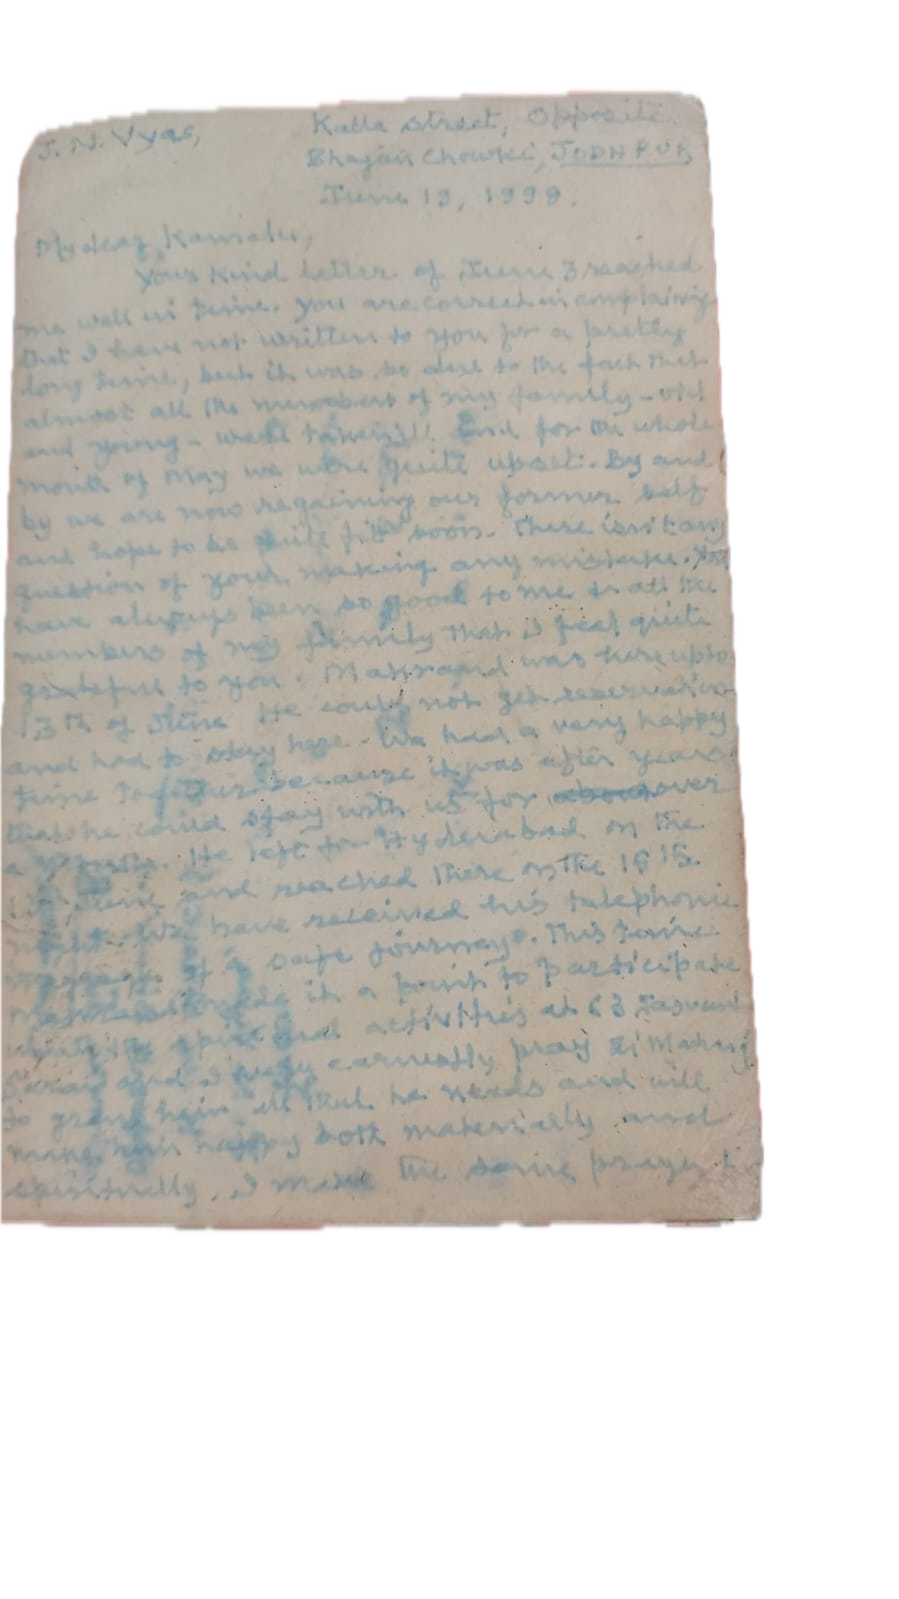 J. N. Vyas, Kalla Street, Opposite
Bhajan Chowki, JODHPUR
June 19, 1999.
My dear Kamalu,
Your kind letter of June 3 reached
me well in time. You are correct in complaining
that I have not written to you for a pretty
long time, but it was so due to the fact that
almost all the members of my family - old
and young - went taken ill and for the whole
month of May we were quite upset. By and
by we are now regaining our former self
and hope to be quite fit soon. There isn't any
question of your making any mistake. You
have always been so good to me & all the
members of my family that I feel quite
grateful to you. Makrand was here upto
13th of June. He could not get reservation
and had to stay here. We had a very happy
time together because it was after years
that he could stay with us for about over
a month. He left for Hyderabad on the
June and reached there on the 15th
night. We have received his telephonic
message of a safe journey. This time
Makrand made it a point to participate
in the spiritual activities at 63 Jaswant
Sarai and I very earnestly pray Sri Maharaj
to grant him all that he needs and will
make him happy both materially and
spiritually. I make the same prayer for